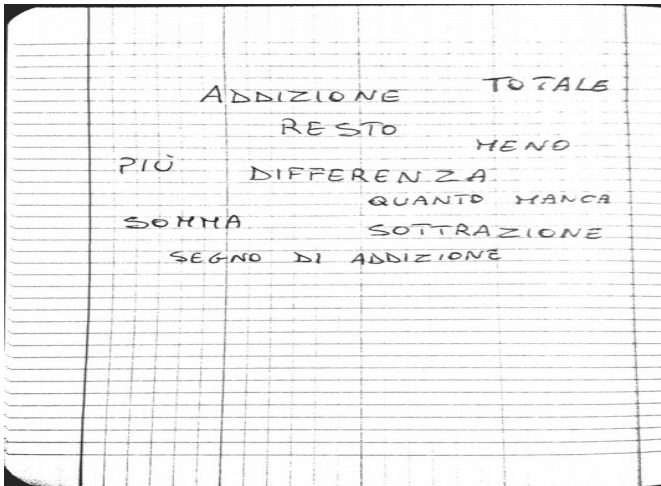 ADDIZIONE TOTALE
RESTO
MENO
PIÙ DIFFERENZA
QUANTO MANCA
SOMMA SOTTRAZIONE
SEGNO DI ADDIZIONE